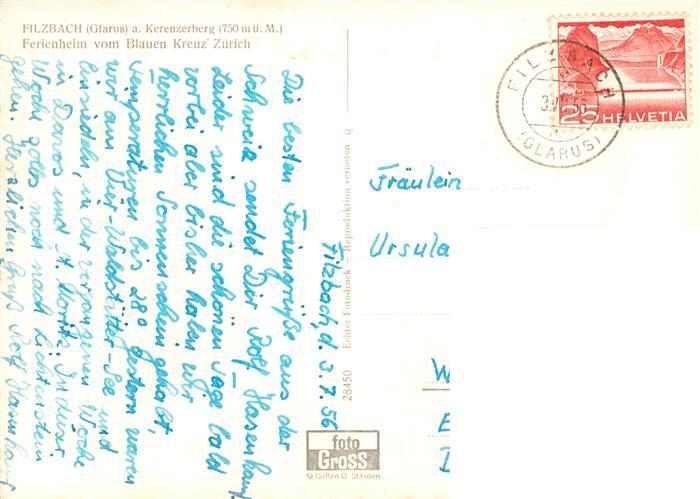 FILZBACH (Glarus) a. Kerenzerberg (750 m ü. M.)
Ferienheim vom Blauen Kreuz Zürich
Filzbach, d. 3.7.56
Die besten Feriengrüße aus der
Schweiz sendet Dir Rolf Hasenkamp
Leider sind die schönen Tage bald
vorbei aber bisher haben wir
herrlichen Sonnenschein gehabt,
Temperaturen bis 28° gestern waren
wir am Vier-Waldstätter-See und
Einsiedeln, in der vergangenen Woche
in Davos und St. Moritz. In dieser
Woche gehts noch nach Lichtenstein
gehen. Herzlichen Gruß Rolf Hasenkamp
Echter Fotodruck - Reproduktion verboten q
28450
foto
Gross
St. Gallen O St. Fiden
FILZBACH
(GLARUS)
25 HELVETIA
Fräulein
Ursula
W
E